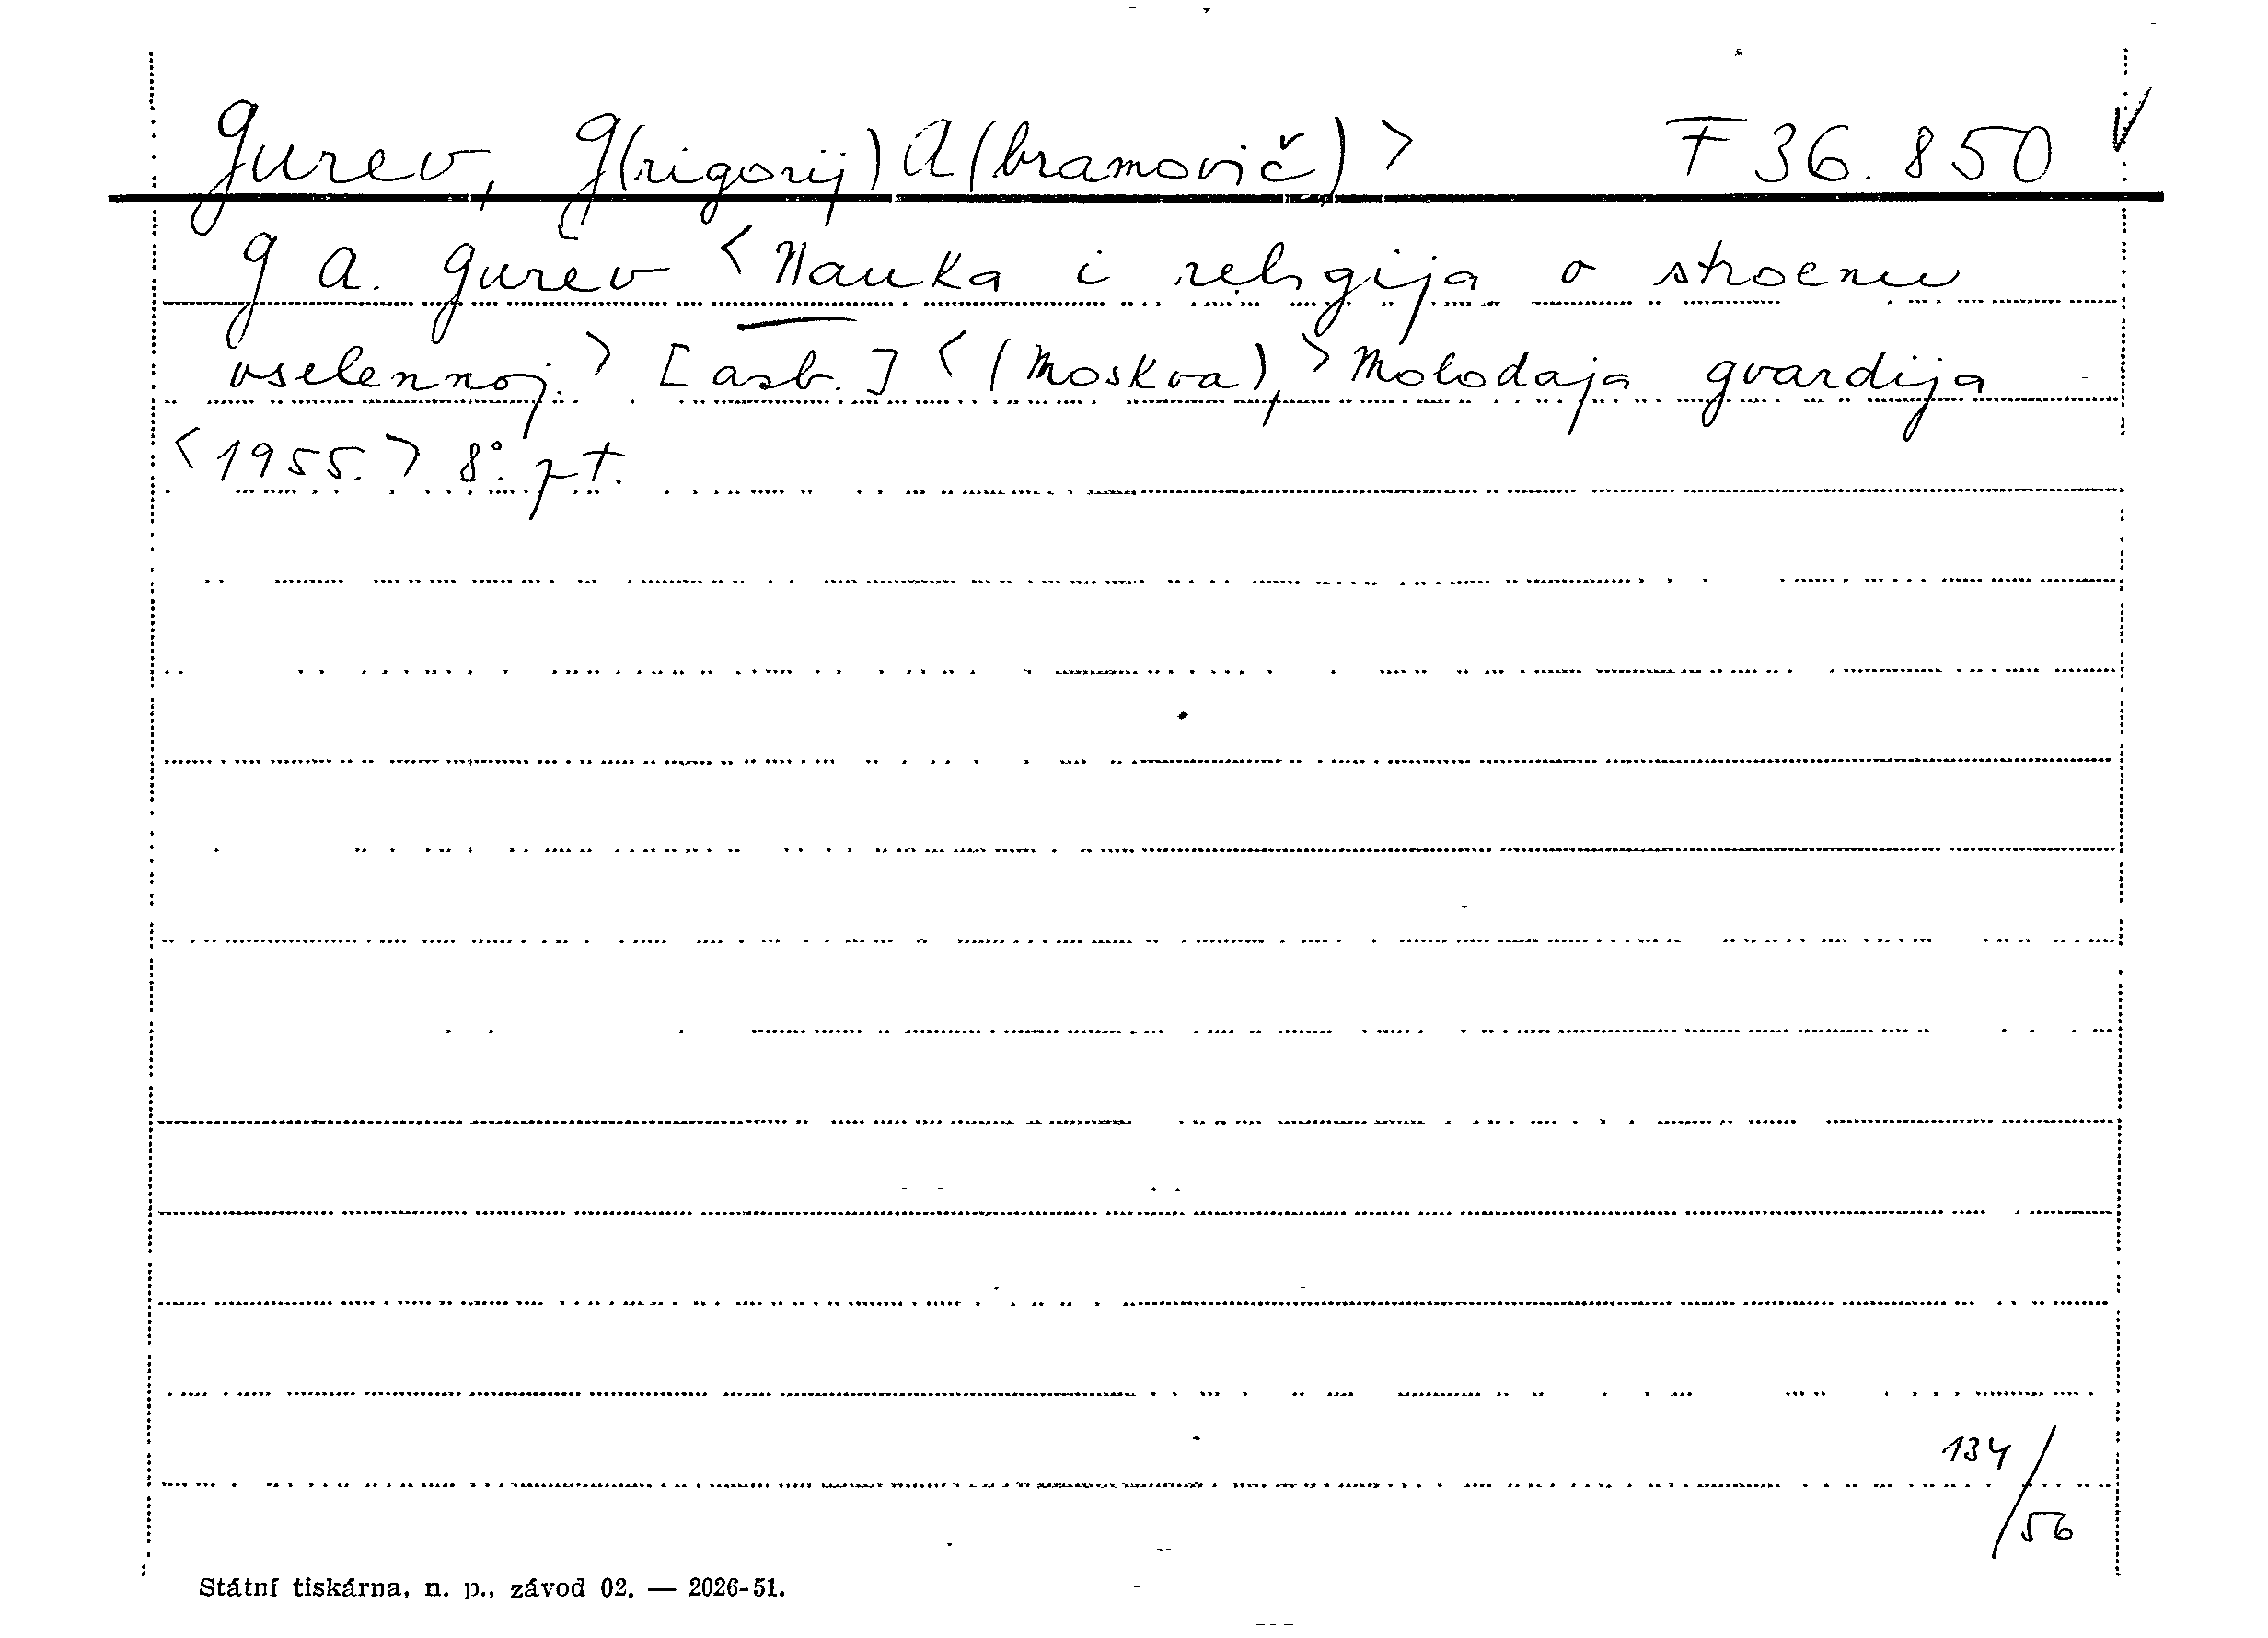 Gurev, G(rigorij) A(bramovič) > F 36.850 V
G A. Gurev < Nauka i religija o stroenii
vselennoj. > [azb.] < (Moskva), > Molodaja gvardija
< 1955. > 8°. pt.
134/56
Státní tiskárna, n. p., závod 02. — 2026-51.